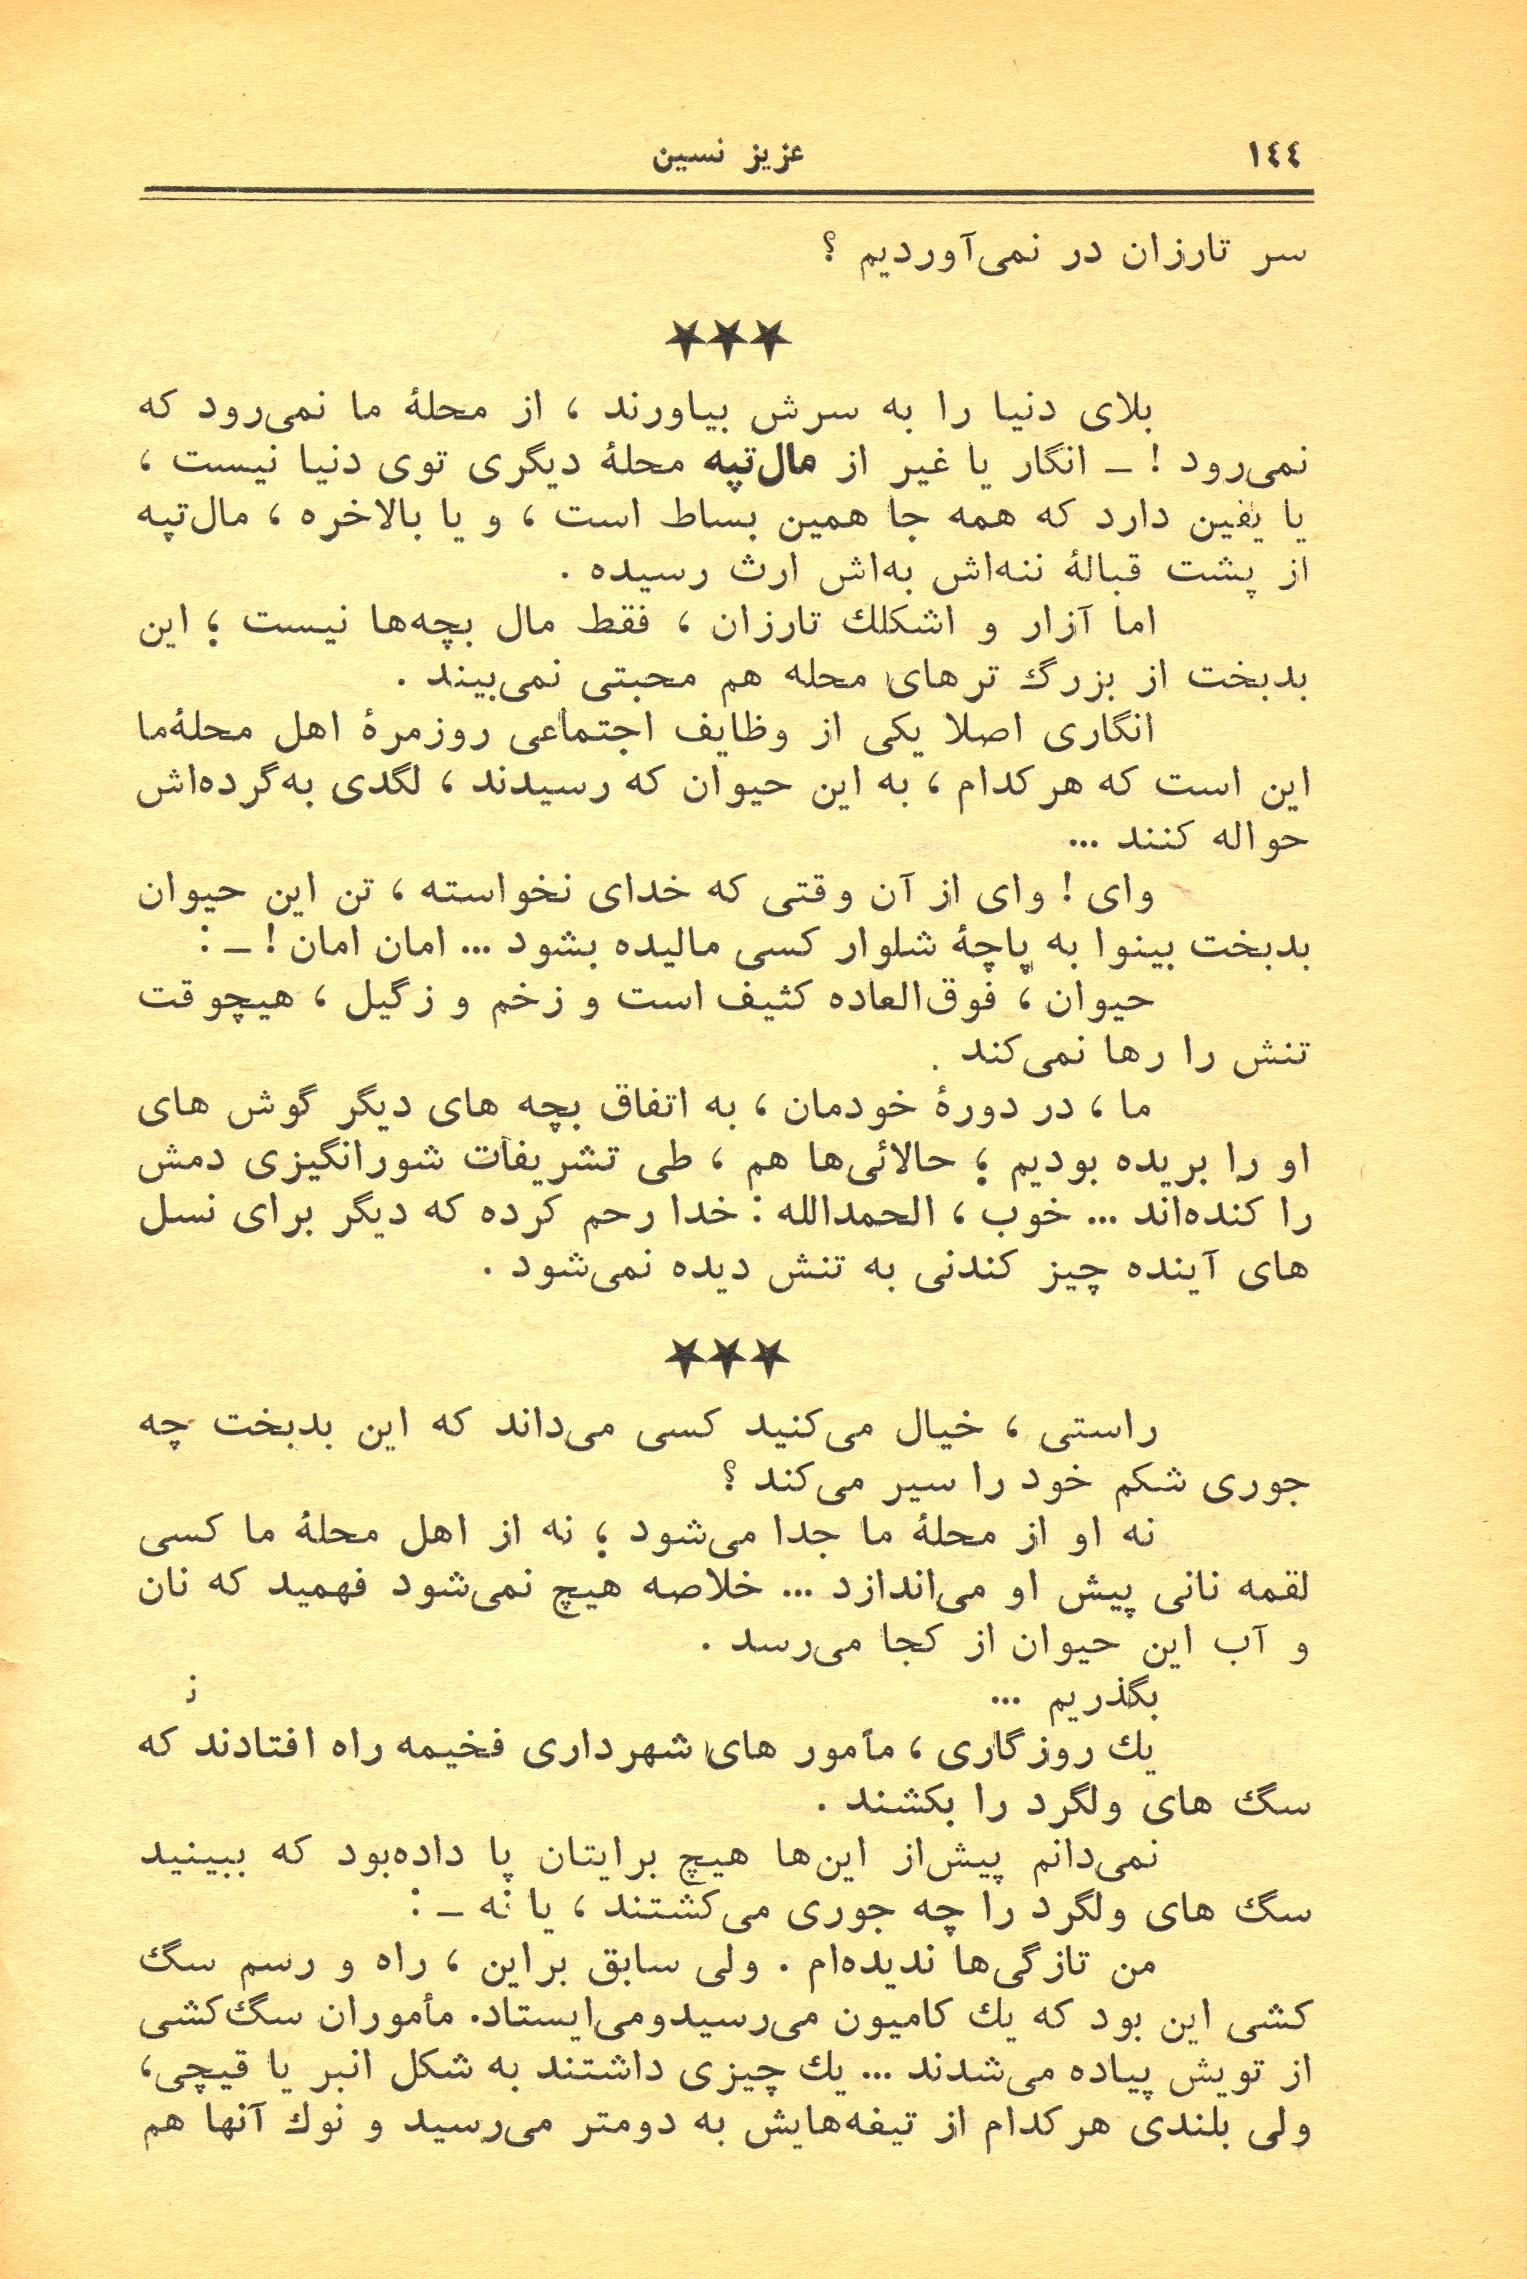 ١٤٤
عزیز نسین
سر تارزان در نمی‌آوردیم ؟
★★★
بلای دنیا را به سرش بیاورند ، از محلۀ ما نمی‌رود که
نمی‌رود ! ـ انگار یا غیر از مال‌تپه محلۀ دیگری توی دنیا نیست ،
یا یقین دارد که همه جا همین بساط است ، و یا بالاخره ، مال‌تپه
از پشت قبالۀ ننه‌اش به‌اش ارث رسیده .
اما آزار و اشكلك تارزان ، فقط مال بچه‌ها نیست ؛ این
بدبخت از بزرگ ترهای محله هم محبتی نمی‌بیند .
انگاری اصلا یکی از وظایف اجتماعی روزمرۀ اهل محلۀما
این است که هر کدام ، به این حیوان که رسیدند ، لگدی به‌گرده‌اش
حواله کنند ...
وای ! وای از آن وقتی که خدای نخواسته ، تن این حیوان
بدبخت بینوا به پاچۀ شلوار کسی مالیده بشود ... امان امان ! ـ :
حیوان ، فوق‌العاده کثیف است و زخم و زگیل ، هیچوقت
تنش را رها نمی‌کند .
ما ، در دورۀ خودمان ، به اتفاق بچه های دیگر گوش های
او را بریده بودیم ؛ حالائی‌ها هم ، طی تشریفات شورانگیزی دمش
را کنده‌اند ... خوب ، الحمدالله : خدا رحم کرده که دیگر برای نسل
های آینده چیز کندنی به تنش دیده نمی‌شود .
★★★
راستی ، خیال می‌کنید کسی می‌داند که این بدبخت چه
جوری شکم خود را سیر می‌کند ؟
نه او از محلۀ ما جدا می‌شود ؛ نه از اهل محلۀ ما کسی
لقمه نانی پیش او می‌اندازد ... خلاصه هیچ نمی‌شود فهمید که نان
و آب این حیوان از کجا می‌رسد .
بگذریم ...
یك روزگاری ، مأمور های شهرداری فخیمه راه افتادند که
سگ های ولگرد را بکشند .
نمی‌دانم پیش‌از این‌ها هیچ برایتان پا داده‌بود که ببینید
سگ های ولگرد را چه جوری می‌کشتند ، یا نه ـ :
من تازگی‌ها ندیده‌ام . ولی سابق براین ، راه و رسم سگ
کشی این بود که یك کامیون می‌رسیدومی‌ایستاد. مأموران سگ‌کشی
از تویش پیاده می‌شدند ... یك چیزی داشتند به شکل انبر یا قیچی،
ولی بلندی هر کدام از تیغه‌هایش به دومتر می‌رسید و نوك آنها هم